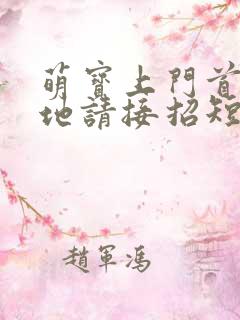 萌寶上門首
地請接招短
趙軍馮